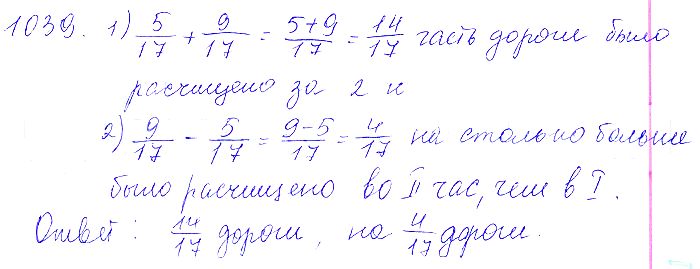 1039. 1) 5/17 + 9/17 = 5+9/17 = 14/17 часть дороги было
расчищено за 2 ч
2) 9/17 - 5/17 = 9-5/17 = 4/17 на столько больше
было расчищено во II час, чем в I.
Ответ: 14/17 дороги, на 4/17 дороги.